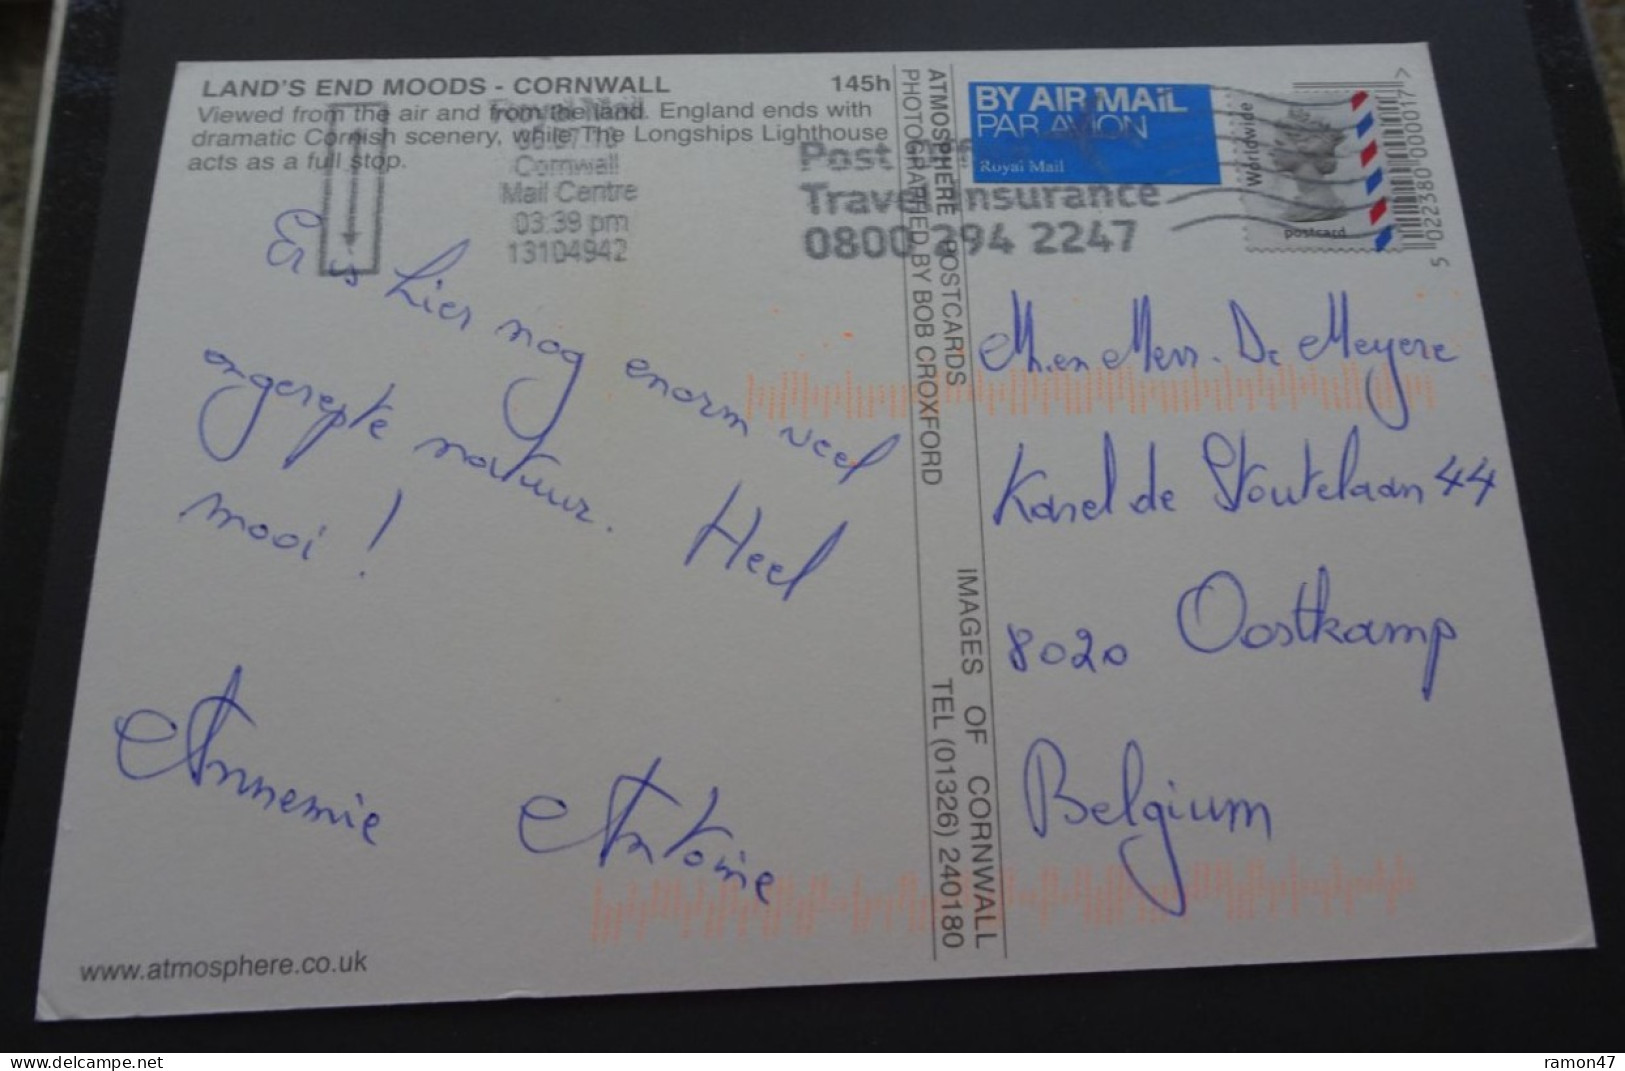 LAND'S END MOODS - CORNWALL 145h
Viewed from the air and from the land. England ends with
dramatic Cornish scenery, while The Longships Lighthouse
acts as a full stop.
Royal Mail
Cornwall
Mail Centre
03:39 pm
13104942
Post Office
Travel Insurance
0800 294 2247
BY AIR MAIL
PAR AVION
Royal Mail
Worldwide
postcard
5 022380 000017 >
Er is hier nog enorm veel
ongerepte natuur. Heel
mooi !
Annemie Antoine
ATMOSPHERE POSTCARDS
PHOTOGRAPHED BY BOB CROXFORD
IMAGES OF CORNWALL
TEL (01326) 240180
M. en Mevr. De Meyere
Karel de Stoutelaan 44
8020 Oostkamp
Belgium
www.atmosphere.co.uk
www.delcampe.net
ramon47